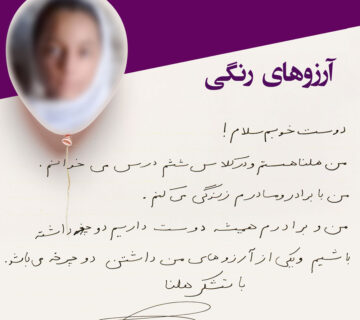 آرزوهای رنگی
دوست خوبم سلام!
من هلنا هستم و در کلاس ششم درس می خوانم.
من با برادر و مادرم زندگی می کنم.
من و برادرم همیشه دوست داریم دوچرخه داشته
باشیم و یکی از آرزوهای من داشتن دوچرخه می باشد.
با تشکر هلنا